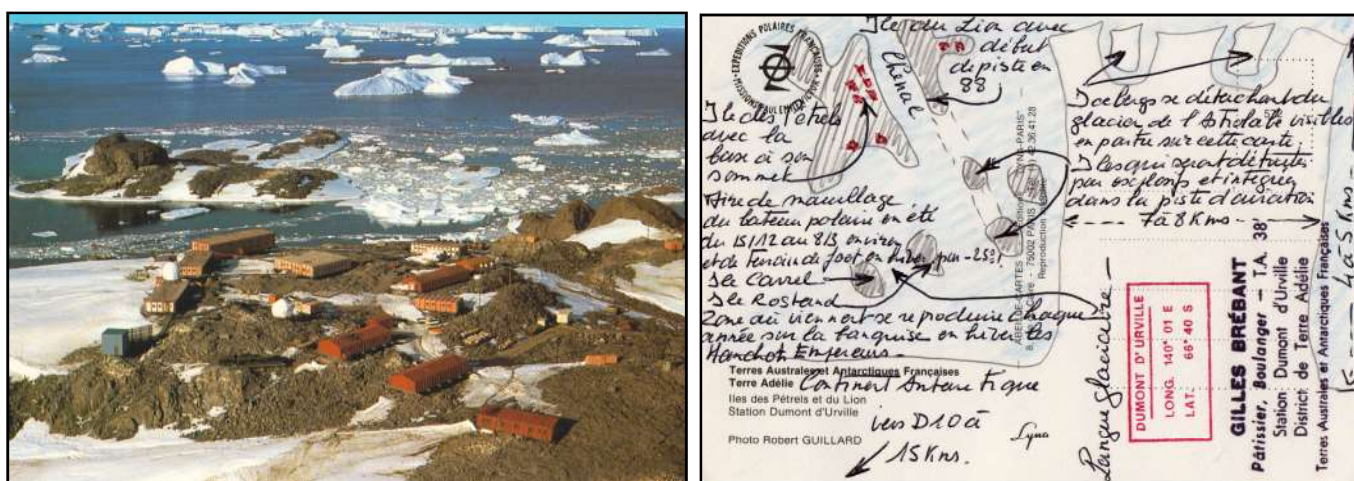 EXPÉDITIONS POLAIRES FRANÇAISES
MISSIONS PAUL-EMILE VICTOR
Ile du Lion avec
début
de piste en
88
Chenal
Ile des Pétrels
avec la
base à son
sommet
Aire de mouillage
du bateau polaire en été
du 15/12 au 8/3 environ
et de terrain de foot en hiver par -25°!
Ile Carrel
Ile Rostand
Zone où viennent se reproduire chaque
année sur la banquise en hiver les
Manchots Empereurs -
Icebergs se détachant du
glacier de l'Astrolabe visibles
en partie sur cette carte
Iles qui seront détruites
par explosifs et intégrées
dans la piste d'aviation
7 à 8 Kms
4 à 5 Kms
Langue glaciaire
Terres Australes et Antarctiques Françaises
Terre Adélie
Continent Antarctique
Iles des Pétrels et du Lion
Station Dumont d'Urville
Photo Robert GUILLARD
vers D10 à
15 Kms.
Lyna
75002 PARIS
Reproduction
DUMONT D'URVILLE
LONG. 140° 01 E
LAT. 66° 40 S
GILLES BRÉBANT
Pâtissier, Boulanger — T.A. 38
Station Dumont d'Urville
District de Terre Adélie
Terres Australes et Antarctiques Françaises